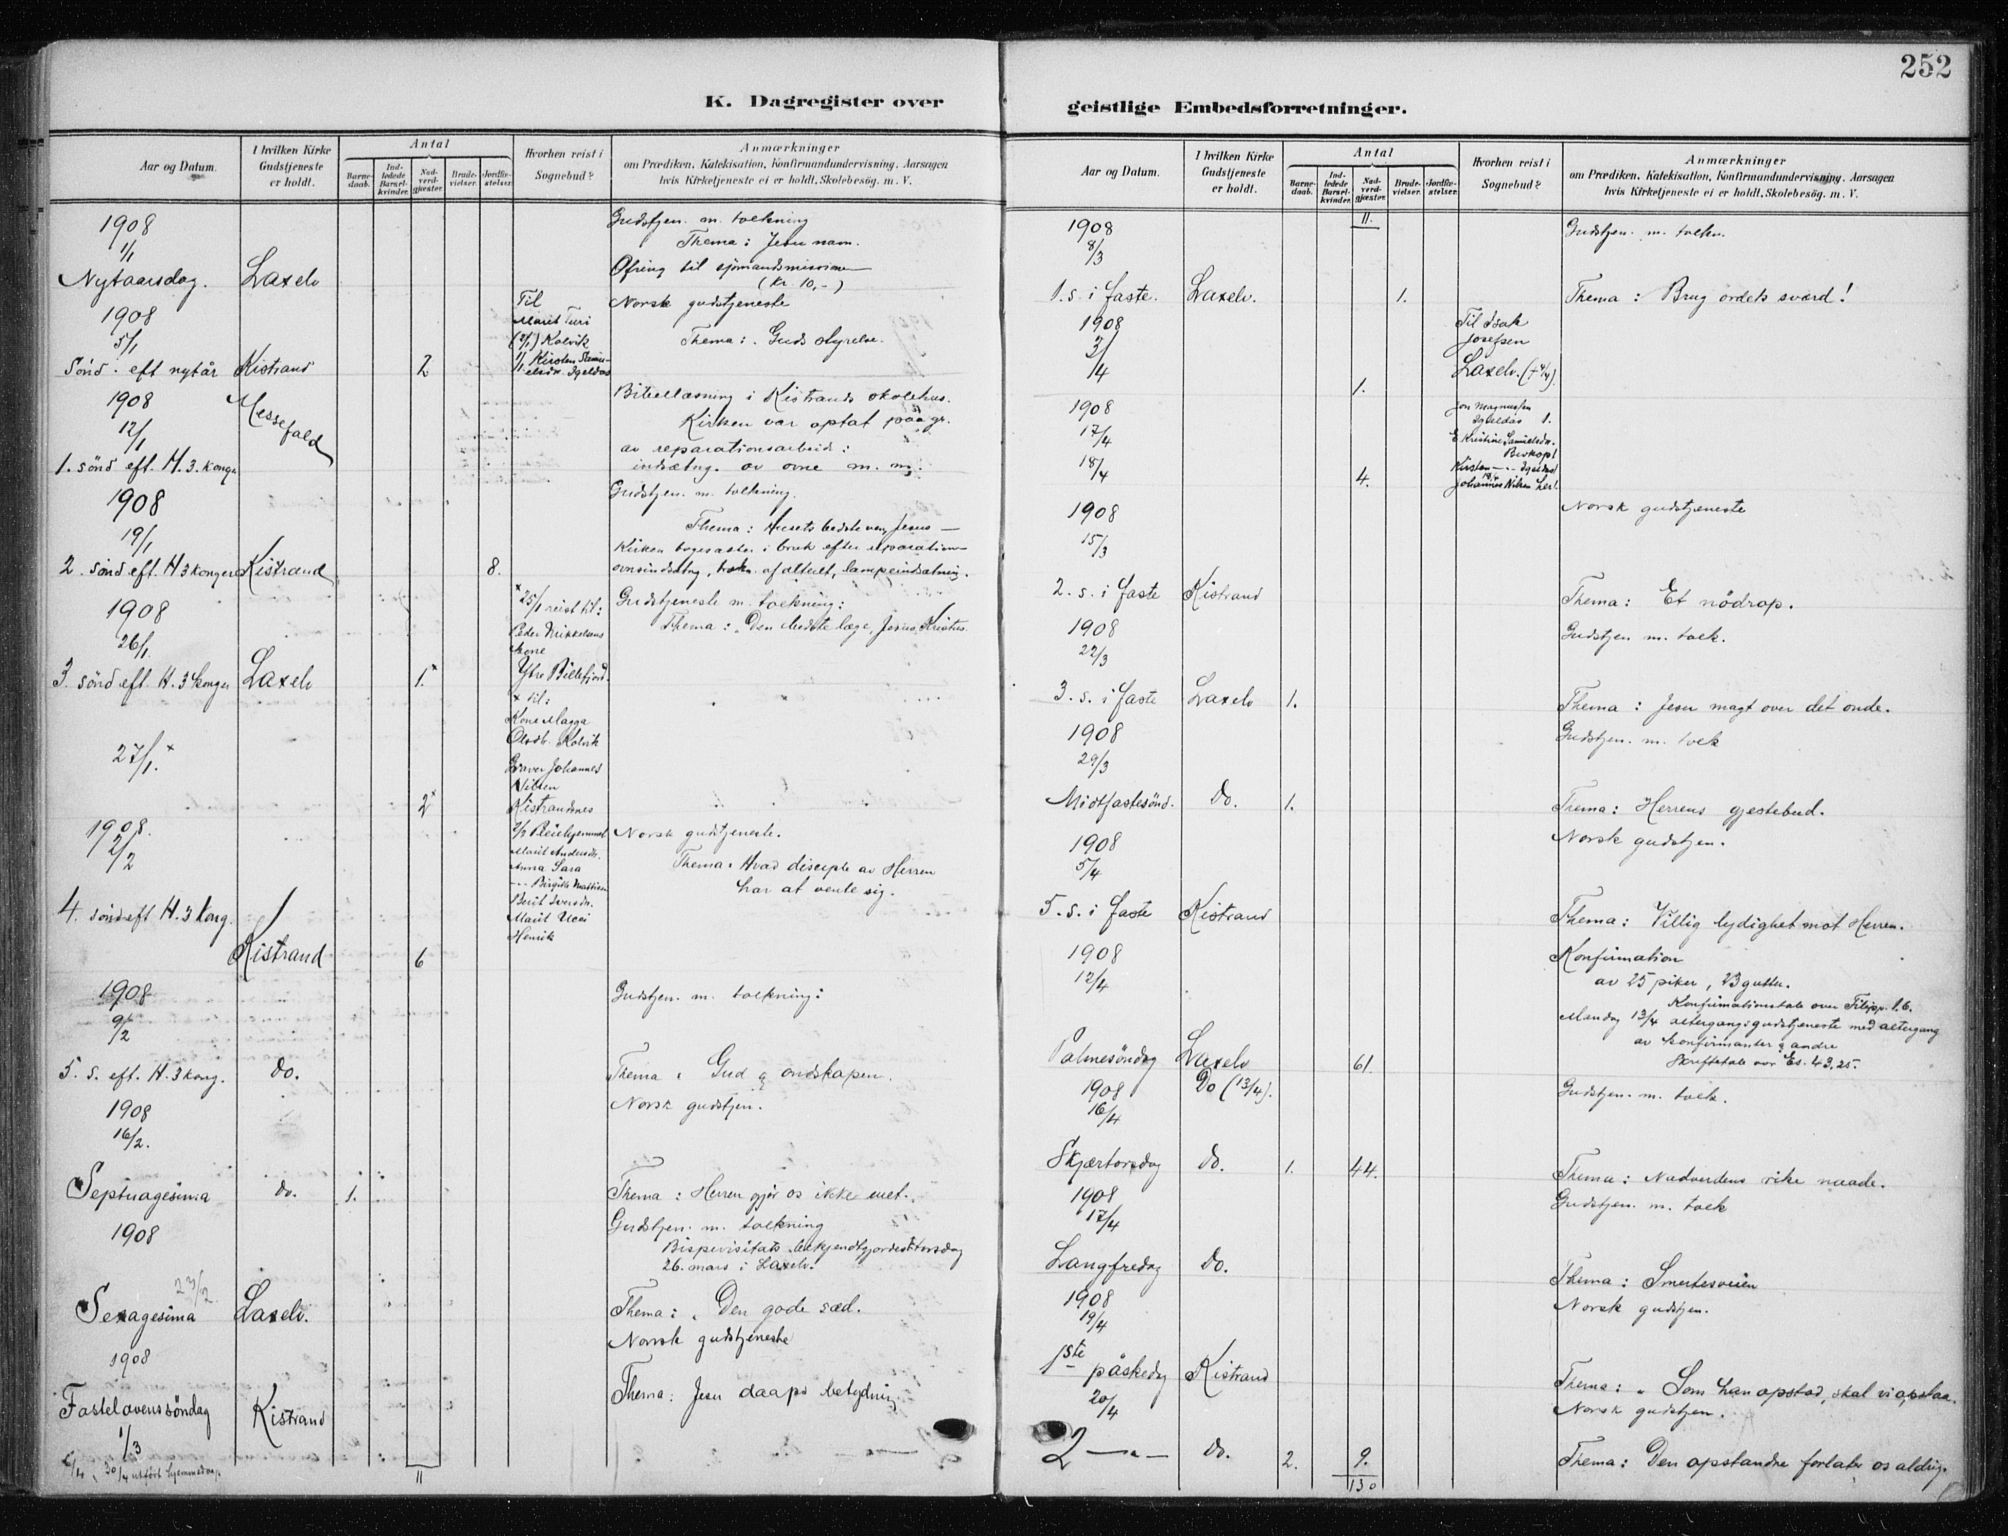 252
K. Dagregister over
geistlige Embedsforretninger.
Aar og Datum.
I hvilken Kirke
Gudstjeneste
er holdt.
Antal
Barne-
daab.
Ind-
ledede
Barsel-
kvinder.
Nad-
verd-
gjæster.
Brude-
vielser.
Jordfæ-
stelser.
Hvorhen reist i
Sognebud?
Anmærkninger
om Prædiken, Katekisation, Konfirmandundervisning, Aarsagen
hvis Kirketjeneste ei er holdt, Skolebesøg. m. V.
1908
1/1
Nytaarsdag. Laxelv
Gudstjen. m. tolkning
Thema: Jesu navn.
Ofring til sjömandsmissionen
(Kr 10,-)
1908
5/1
Sönd. eft nytår Kistrand 2
Til
Marit Turi
(2/1) Kolvik
1/1 Kirsten
Norsk gudstjeneste
Thema: Guds styrelse.
1908
12/1
1. sönd eft. H. 3. konger
Messefald
Bibellæsning i Kistrands skolehus.
Kirken var optat på gr.
av reparationsarbeid:
indsætng. av ovne m. m.
1908
19/1
2. sönd eft. H 3 konger Kistrand 8.
Gudstjen. m. tolkning.
Thema: Husets bedste ven, Jesus —
Kirken toges atter i bruk efter reparation
ovnsindsætng, af altert, lampeindsætning.
1908
26/1.
3. sönd eft. H. 3 konger Laxelv 1.x
x 25/1 reist til:
Peder Mikkelsens
kone
Ytre Billefjord.
Gudstjeneste m. tolkning:
Thema: Den bedste læge, Jesus Kristus
27/1. x
2x
x til:
Kone Magga
Olsdt. Kolvik
Graver Johannes
Nilsen
Kistrandnes
1908.
2/2
4. sönd eft H. 3 kong.
Kistrand 6
Marit Andersdr.
Anna Sara
-- Birgitte Mattisen
Berit Iversdr.
Marit Ucci
Henrik
Norsk gudstjeneste.
Thema: Hvad disciple av Herren
har at vente sig.
1908
9/2
5. s. eft. H. 3 kong. do.
Gudstjen. m. tolkning:
Thema: Gud og ondskapen.
1908
16/2.
Septuagesima do. 1.
Norsk gudstjen.
Thema: Herren gjör os ikke uret.
1908
23/2
Sexagesima Laxelv.
Gudstjen. m. tolkning
Bispevisitats bekjendtgjordes torsdag
26. mars i Laxelv.
Thema: Den gode sæd.
1908
Fastelavenssöndag Kistrand
1/3
Norsk gudstjeneste
Thema: Jesu daaps betydning
11
Aar og Datum.
I hvilken Kirke
Gudstjeneste
er holdt.
Antal
Barne-
daab.
Ind-
ledede
Barsel-
kvinder.
Nad-
verd-
gjæster.
Brude-
vielser.
Jordfæ-
stelser.
Hvorhen reist i
Sognebud?
Anmærkninger
om Prædiken, Katekisation, Konfirmandundervisning, Aarsagen
hvis Kirketjeneste ei er holdt, Skolebesøg. m. V.
11.
1908
8/3
1. s. i faste. Laxelv. 1.
Gudstjen. m. tolkn.
Thema: Brug ordets sværd!
1908
3/
/4
1.
Til Isak
Josefsen
Laxelv. (+4/4).
1908
17/4
18/4
4.
Jon Magnussen
Igeldas 1.
E Kristine Samuelsdr.
Biskop 1
Johannes Nilsen
1908
15/3
2. s. i faste Kistrand
Norsk gudstjeneste
Thema: Et nödrop.
1908
22/3
3. s. i faste Laxelv 1.
Gudstjen m. tolk.
Thema: Jesu magt over det onde.
1908
29/3
Midtfastesönd. do. 1.
Gudstjen. m. tolk
Thema: Herrens gjestebud.
1908
5/4
5. s. i faste Kistrand
Norsk gudstjen.
Thema: Villig lydighet mot Herren.
1908
12/4
Palmesöndag Laxelv 61.
Do (13/4).
Konfirmation
av 25 piker, 23 gutter.
Konfirmationstale over Filipp. 1.6.
Mandag 13/4 altergangsgudstjeneste med altergang
av konfirmanter og andre
Skriftetale over Es. 43,25.
1908
16/4
Skjærtorsdag do. 1. 44.
Gudstjen. m. tolk.
Thema: Nadverdens rike naade.
1908
17/4
Langfredag do.
Gudstjen. m. tolk
Thema: Smertesveien
1908
19/4
1ste påskedag Kistrand
Norsk gudstjen.
Thema: Som han opstod, skal vi opstaa.
20/4
2 — do. 2. 9.
130
Norsk gudstjen.
Thema: Den opstandne forlater os aldrig.